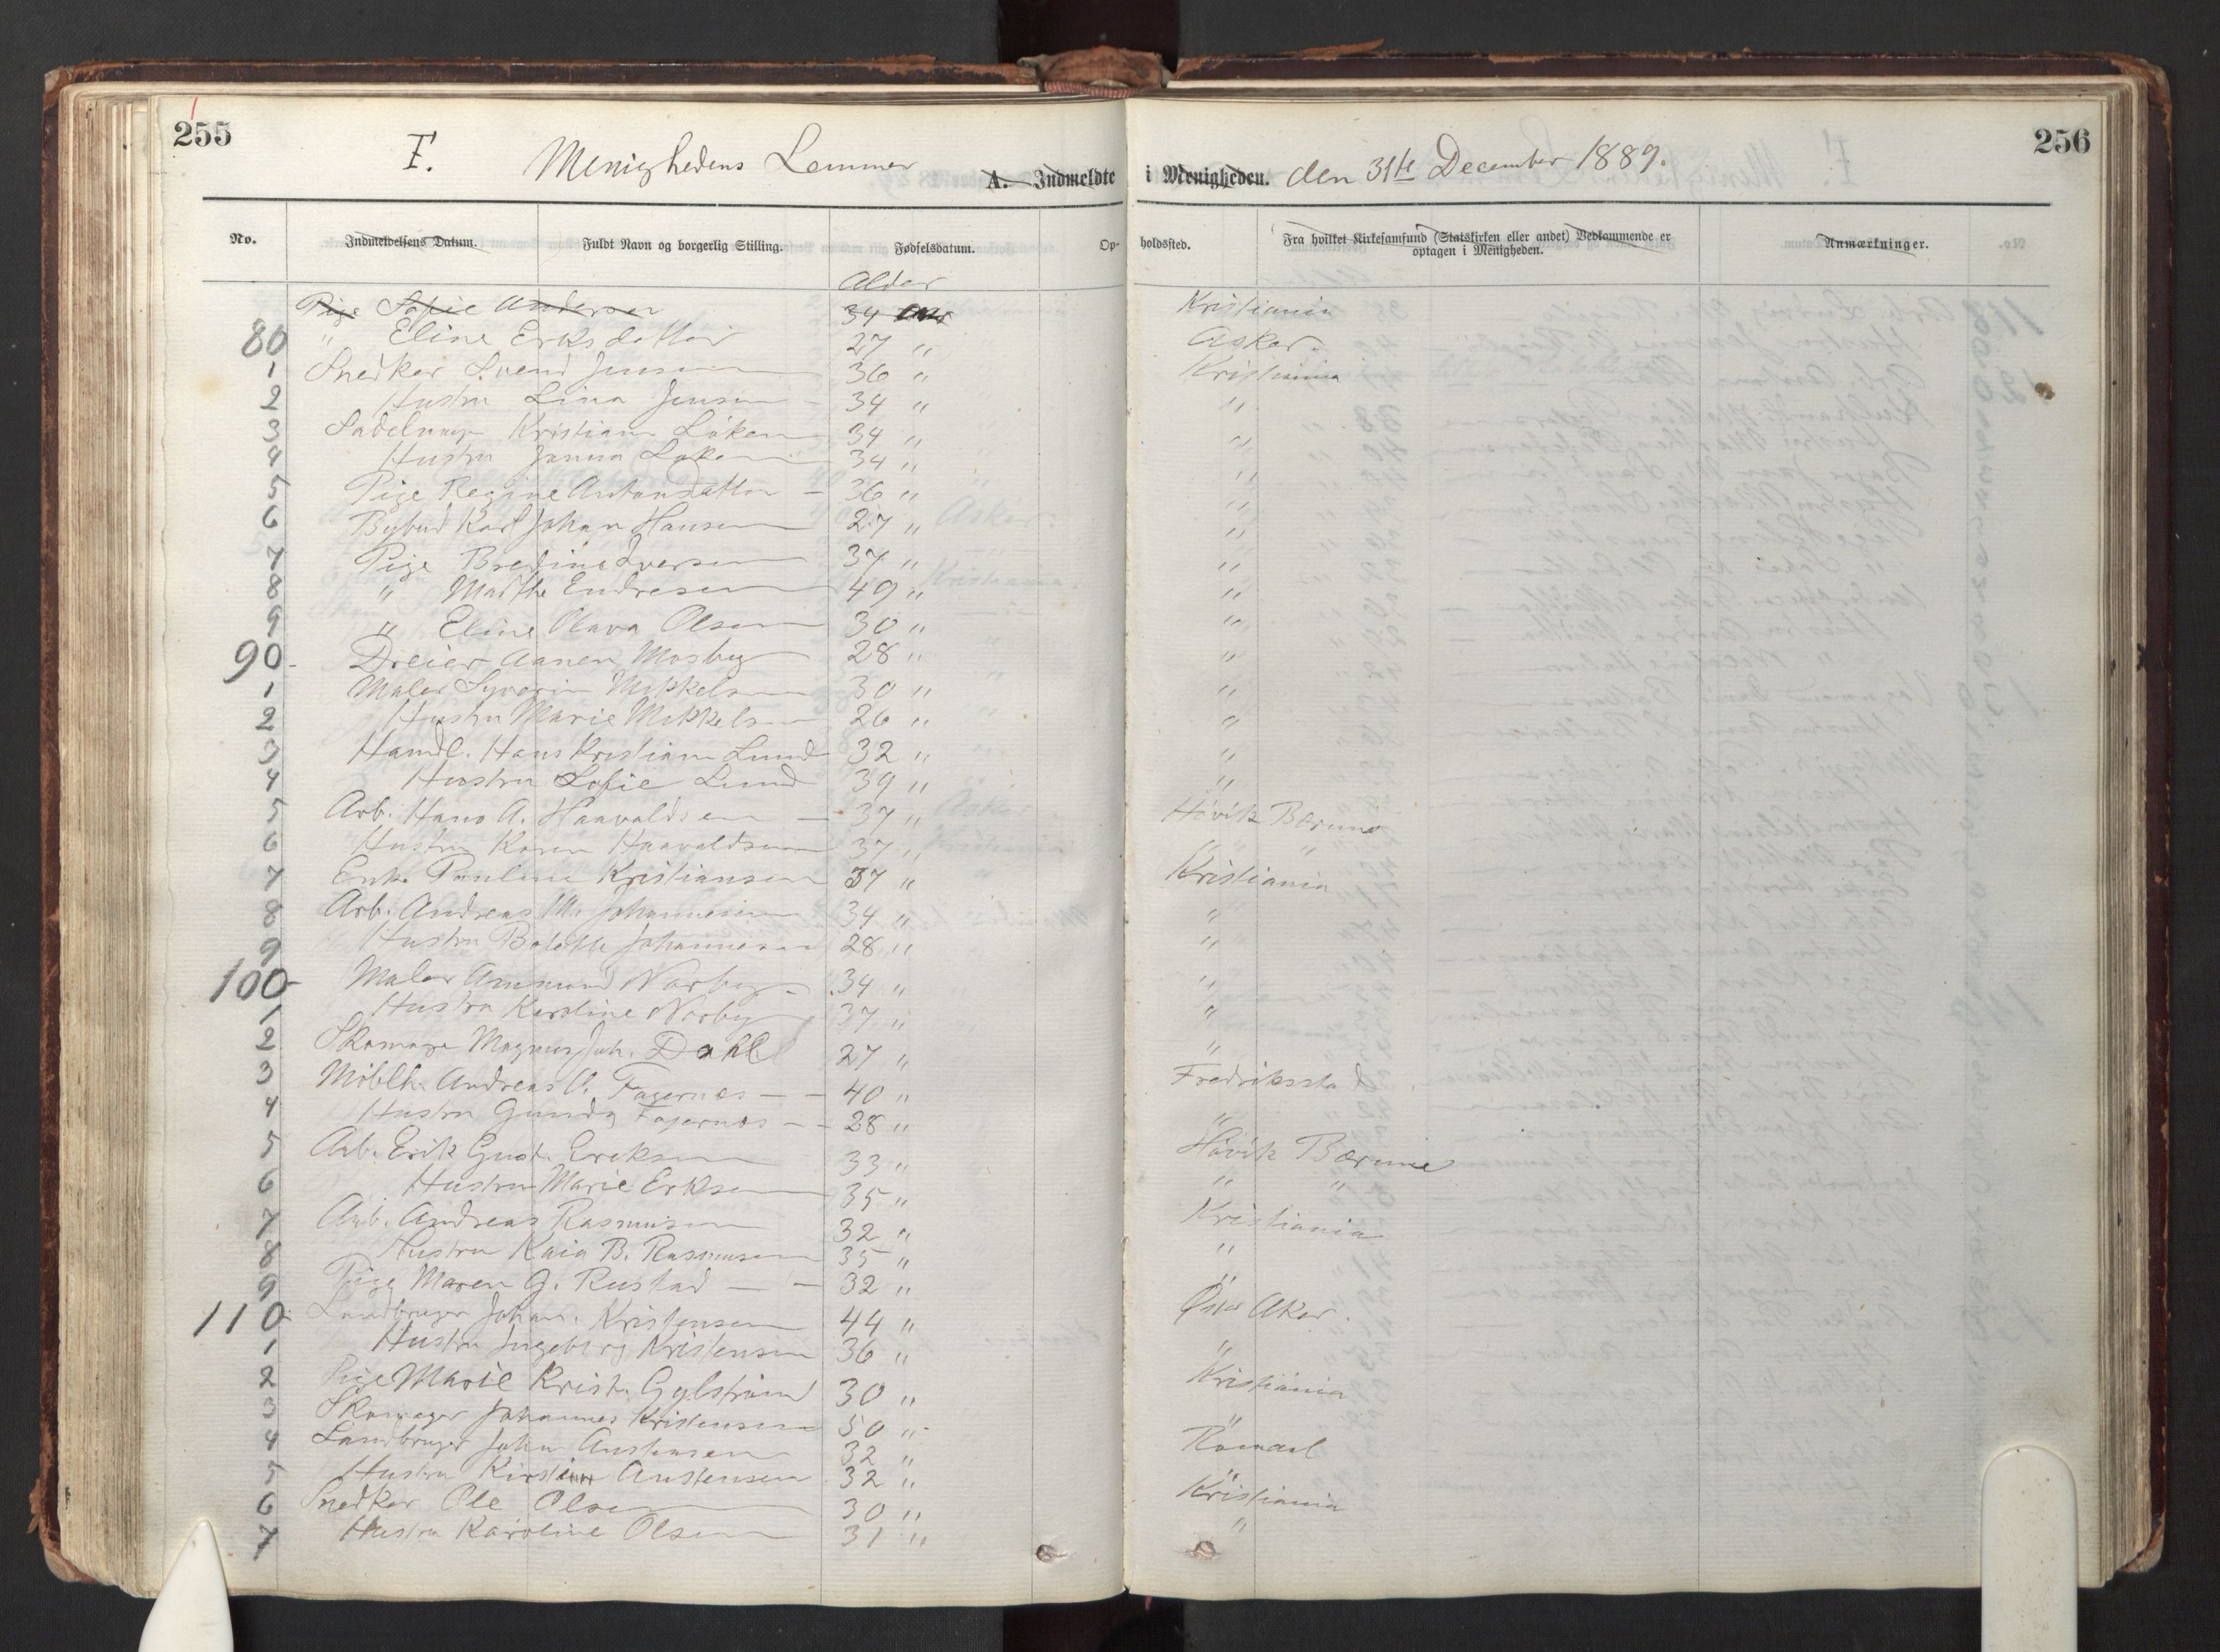 255
F. Menighedens Lemmer A. Indmeldte i Menigheden. den 31te December 1889.
256
No. Indmeldelsens Datum. Fuldt Navn og borgerlig Stilling. Fødselsdatum. Opholdsted. Fra hvilket Kirkesamfund (Statskirken eller andet) Vedkommende er optagen i Menigheden. Anmærkninger.
Alder
Pige Sofie Andersen 34 Aar Kristiania
80 " Eline Eriksdatter 27 " Asker
1 Snedker Svend Jensen 36 " Kristiania
2 Hustru Lina Jensen 34 " "
3 Sadelmager Kristian Løken 34 " "
4 Hustru Janna Løken 34 " "
5 Pige Regine Antonsdatter — 36 " "
6 Bybud Karl Johan Hansen 27 " "
7 Pige Bredine Iversen 37 " "
8 " Marthe Endresen 49 " "
9 " Eline Olava Olsen 30 " "
90 Dreier Aanen Mosby 28 " "
1 Maler Syverin Mikkelsen 30 " "
2 Hustru Marie Mikkelsen 26 " "
3 Handl. Hans Kristian Lund 32 " "
4 Hustru Sofie Lund 39 " "
5 Arb. Hans A. Haavaldsen — 37 " Høvik Bærum
6 Hustru Karen Haavaldsen 37 " " "
7 Enke Pauline Kristiansen 37 " Kristiania
8 Arb. Andreas M. Johannesen 34 " "
9 Hustru Bolette Johannesen 28 " "
100 Maler Ammund Narby 34 " "
1 Hustru Karoline Norby 37 " "
2 Skomager Magnus Joh. Dahl 27 " "
3 Möblh. Andreas O. Fagernes — — 40 " Fredriksstad
4 Hustru Gunda Fagernes — — 28 " "
5 Arb. Erik Gust. Eriksen 33 " Høvik Bærum
6 Hustru Marie Eriksen 35 " " "
7 Arb. Andreas Rasmusen 32 " Kristiania
8 Hustru Kaia B. Rasmusen 35 " "
9 Pige Maren G. Rustad — — 32 " "
110 Landbruger Johan. Kristensen 44 " Østre Aker.
1 Hustru Ingeborg Kristensen 36 " "
2 Pige Marie Krist. Gylstrøm 30 " Kristiania
3 Skomager Johannes Kristensen 50 " "
4 Landbruger John Austensen 32 "
5 Hustru Kirstine Austensen 32 " "
6 Snedker Ole Olsen 30 " Kristiania
7 Hustru Karoline Olsen 31 " "